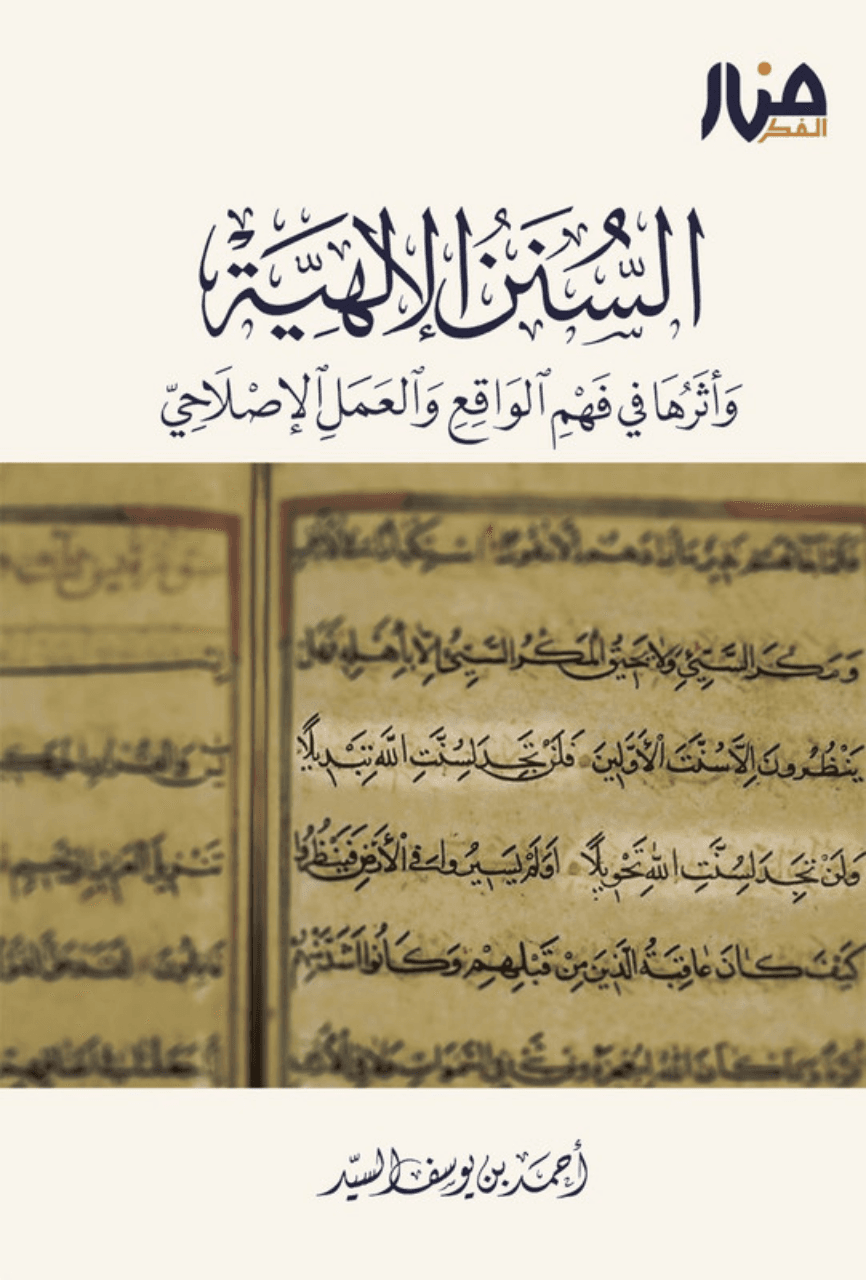 منار
الفكر
السُّنَنُ الإلٰهِيَّة
وَأَثَرُهَا فِي فَهْمِ ٱلوَاقِعِ وَٱلعَمَلِ ٱلإِصْلَاحِيّ
وَمَكْرَ السَّيِّئِ وَلَا يَحِيقُ الْمَكْرُ السَّيِّئُ إِلَّا بِأَهْلِهِ فَهَلْ
يَنْظُرُونَ إِلَّا سُنَّتَ الْأَوَّلِينَ فَلَنْ تَجِدَ لِسُنَّتِ اللَّهِ تَبْدِيلًا
وَلَنْ تَجِدَ لِسُنَّتِ اللَّهِ تَحْوِيلًا أَوَلَمْ يَسِيرُوا فِي الْأَرْضِ فَيَنْظُرُوا
كَيْفَ كَانَ عَاقِبَةُ الَّذِينَ مِنْ قَبْلِهِمْ وَكَانُوا أَشَدَّ مِنْهُمْ
أحمد بن يوسف السيّد